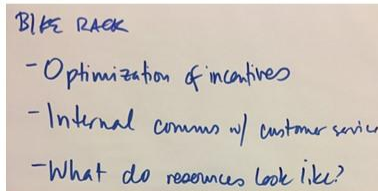 BIKE RACK
- Optimization of incentives
- Internal comms w/ customer servic
- What do resources look like?